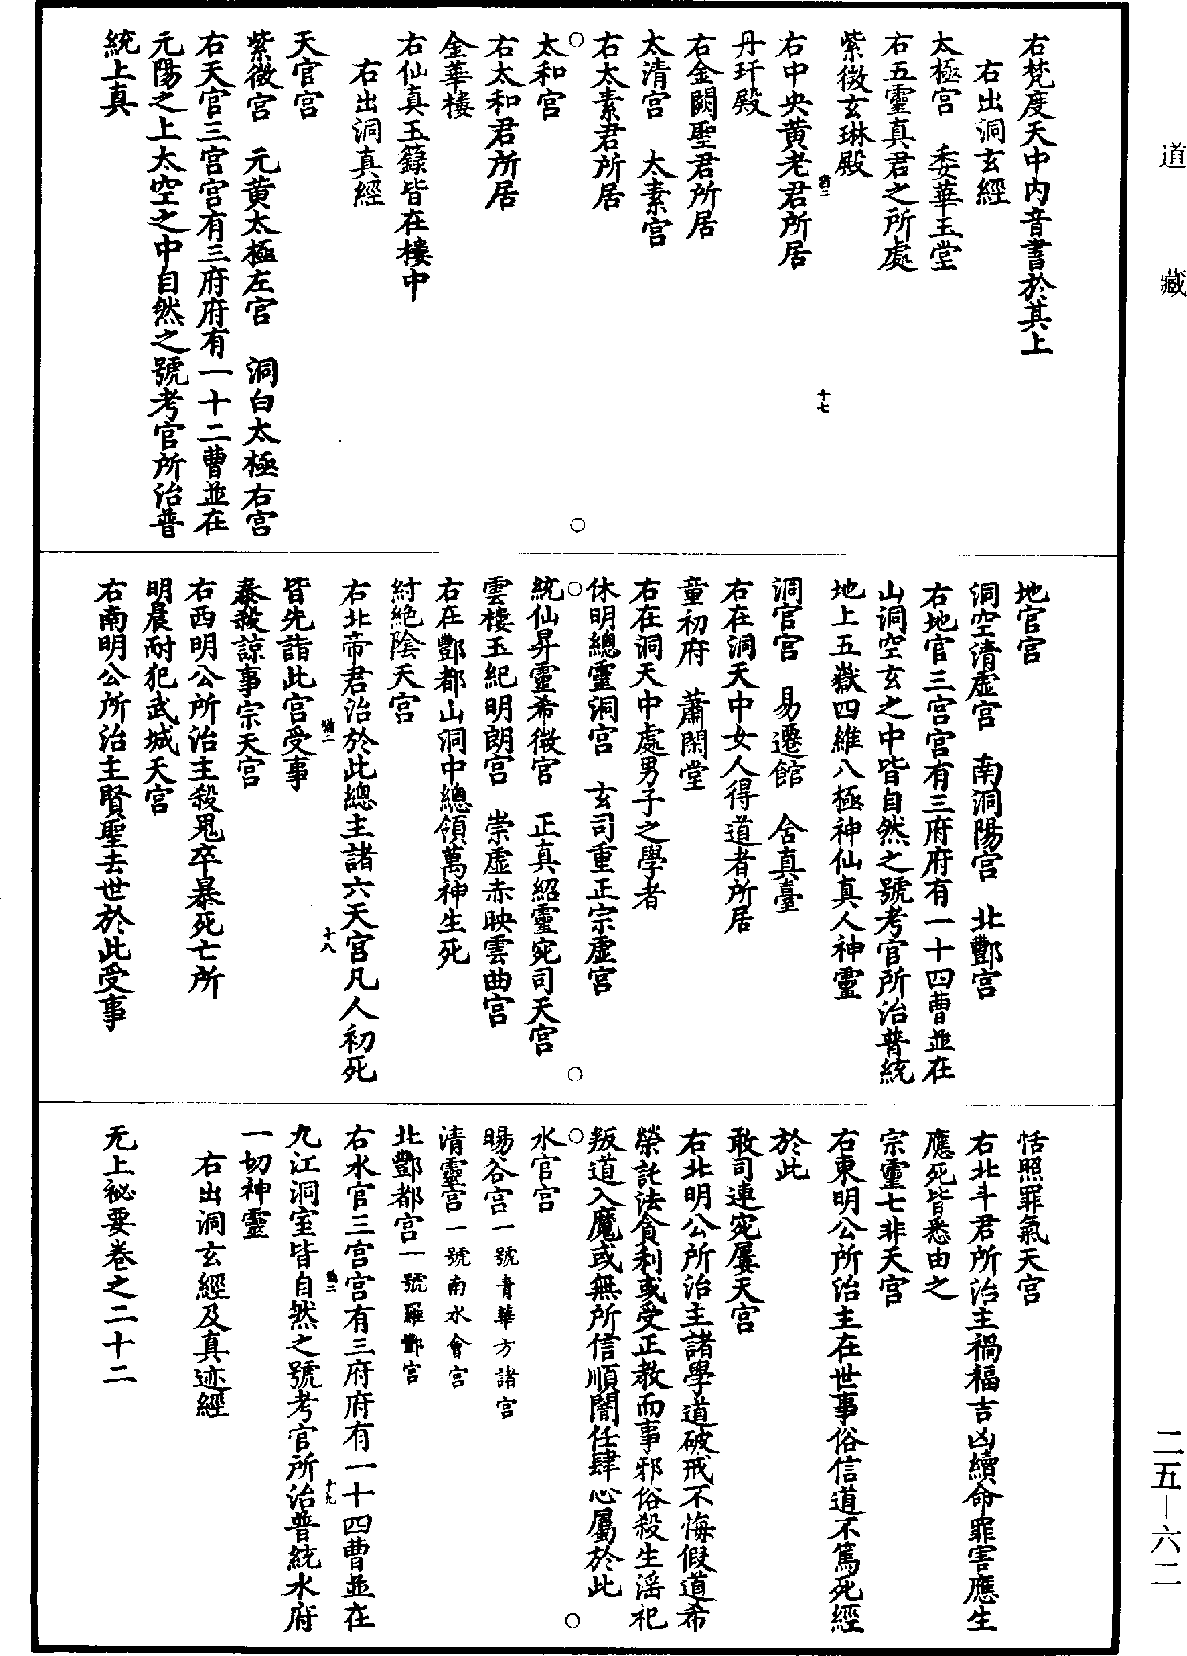 道藏
右梵度天中内音書於其上
右出洞玄經
太極宮　委華玉堂
右五靈真君之所處
紫微玄琳殿
右中央黃老君所居
十七
丹玕殿
右金闕聖君所居
太清宮　太素宮
右太素君所居
太和宮
右太和君所居
金華樓
右仙真玉籙皆在樓中
右出洞真經
天官宮
紫微宮　元黃太極左宮　洞白太極右宮
右天官三宮宮有三府府有一十二曹並在
元陽之上太空之中自然之號考官所治普
統上真
地官宮
洞空清虛宮　南洞陽宮　北酆宮
右地官三宮宮有三府府有一十四曹並在
山洞空玄之中皆自然之號考官所治普統
地上五嶽四維八極神仙真人神靈
洞官宮　易遷館　含真臺
右在洞天中女人得道者所居
童初府　蕭閑堂
右在洞天中處男子之學者
休明總靈洞宮　玄司重正宗虛宮
統仙昇靈希微宮　正真紹靈宛司天宮
雲樓玉紀明朗宮　崇虛赤映雲曲宮
右在酆都山洞中總領萬神生死
紂絕陰天宮
右北帝君治於此總主諸六天宮凡人初死
十八
皆先詣此宮受事
泰殺諒事宗天宮
右西明公所治主殺鬼卒暴死亡所
明晨耐犯武城天宮
右南明公所治主賢聖去世於此受事
恬照罪氣天宮
右北斗君所治主禍福吉凶續命罪害應生
應死皆悉由之
宗靈七非天宮
右東明公所治主在世事俗信道不篤死經
於此
敢司連宛屢天宮
右北明公所治主諸學道破戒不悔假道希
榮託法貪利或受正教而事邪俗殺生滛祀
叛道入魔或無所信順闇任肆心屬於此
水官宮
暘谷宮一號青華方諸宮
清靈宮一號南水會宮
北酆都宮一號羅酆宮
右水官三宮宮有三府府有一十四曹並在
十九
九江洞室皆自然之號考官所治普統水府
一切神靈
右出洞玄經及真迹經
无上祕要卷之二十二
二五—六二